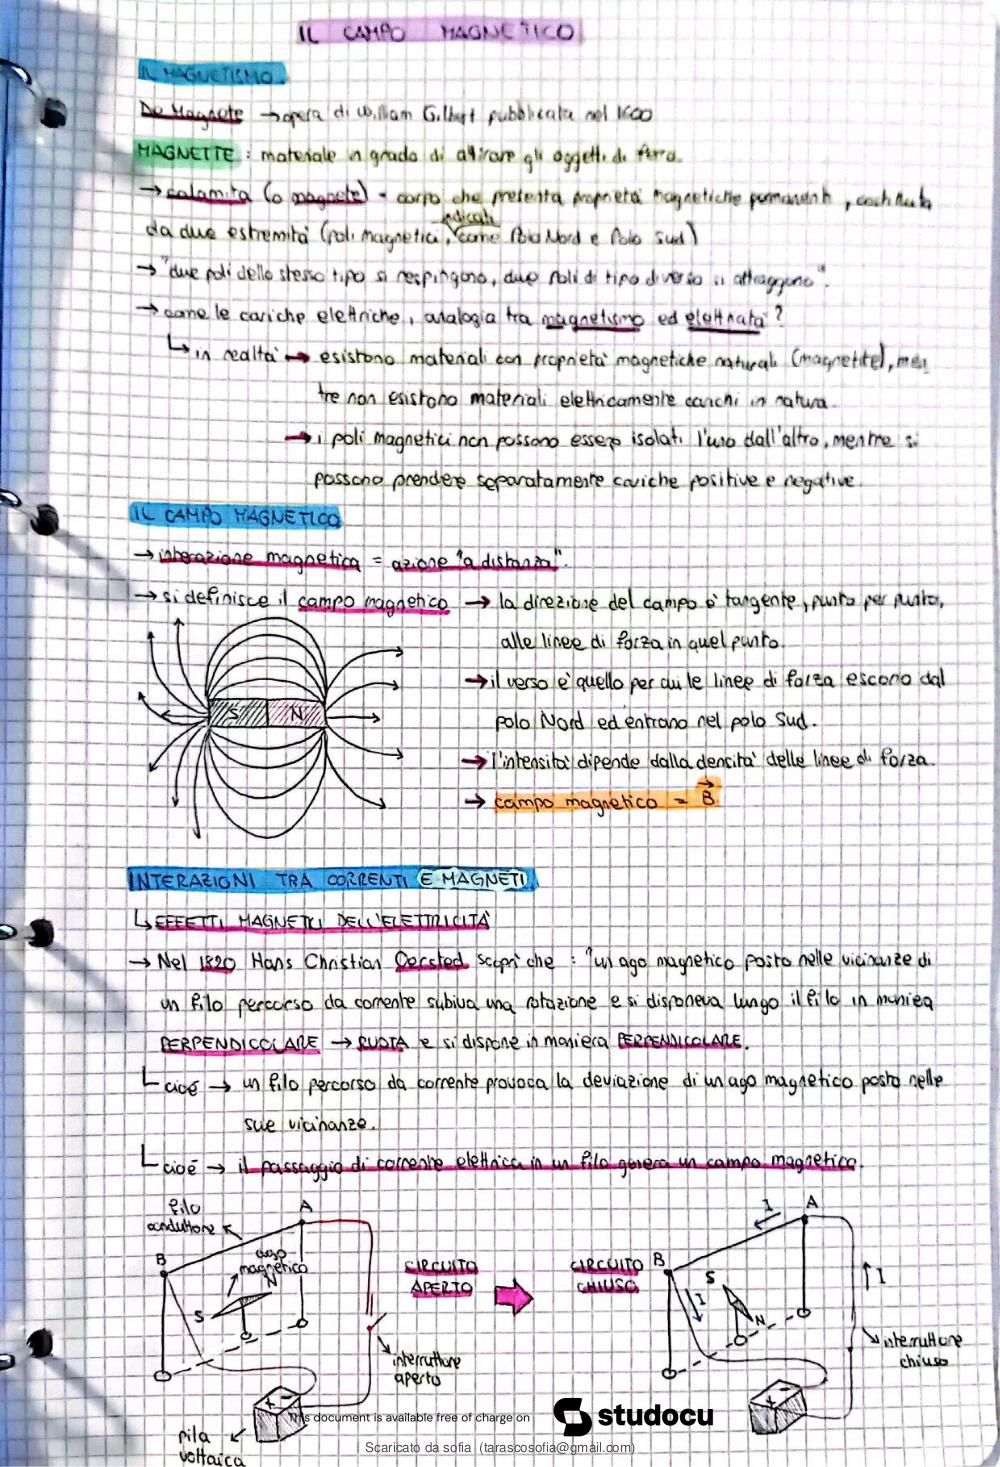 IL CAMPO MAGNETICO
IL MAGNETISMO.
De Magnete → opera di William Gilbert pubblicata nel 1600
MAGNETTE : materiale in grado di attirare gli oggetti di ferro.
→ calamita (o magnete) = corpo che presenta proprietà magnetiche permanenti, costituita
indicati
da due estremità (poli magnetici, come Polo Nord e Polo Sud)
→ "due poli dello stesso tipo si respingono, due poli di tipo diverso si attraggono".
→ come le cariche elettriche, analogia tra magnetismo ed elettricità?
↳ in realtà → esistono materiali con proprietà magnetiche naturali (magnetite), men
tre non esistono materiali elettricamente carichi in natura.
→ i poli magnetici non possono essere isolati l'uno dall'altro, mentre si
possono prendere separatamente cariche positive e negative.
IL CAMPO MAGNETICO
→ interazione magnetica = azione "a distanza".
→ si definisce il campo magnetico → la direzione del campo è tangente, punto per punto,
alle linee di forza in quel punto.
→ il verso è quello per cui le linee di forza escono dal
S N
polo Nord ed entrano nel polo Sud.
→ l'intensità dipende dalla densità delle linee di forza.
→ campo magnetico = B
INTERAZIONI TRA CORRENTI E MAGNETI.
↳ EFFETTI MAGNETICI DELL'ELETTRICITÀ
→ Nel 1820 Hans Christian Oersted scoprì che : "un ago magnetico posto nelle vicinanze di
un filo percorso da corrente subiva una rotazione e si disponeva lungo il filo in maniera
PERPENDICOLARE → RUOTA e si dispone in maniera PERPENDICOLARE.
↳ cioè → un filo percorso da corrente provoca la deviazione di un ago magnetico posto nelle
sue vicinanze.
↳ cioè → il passaggio di corrente elettrica in un filo genera un campo magnetico.
filo
conduttore
A
B
ago
magnetico
N
S
CIRCUITO
APERTO
interruttore
aperto
+ -
pila
voltaica
CIRCUITO
CHIUSO
I
A
B
S
I
N
I
interruttore
chiuso
This document is available free of charge on studocu
Scaricato da sofia (tarascosofia@gmail.com)